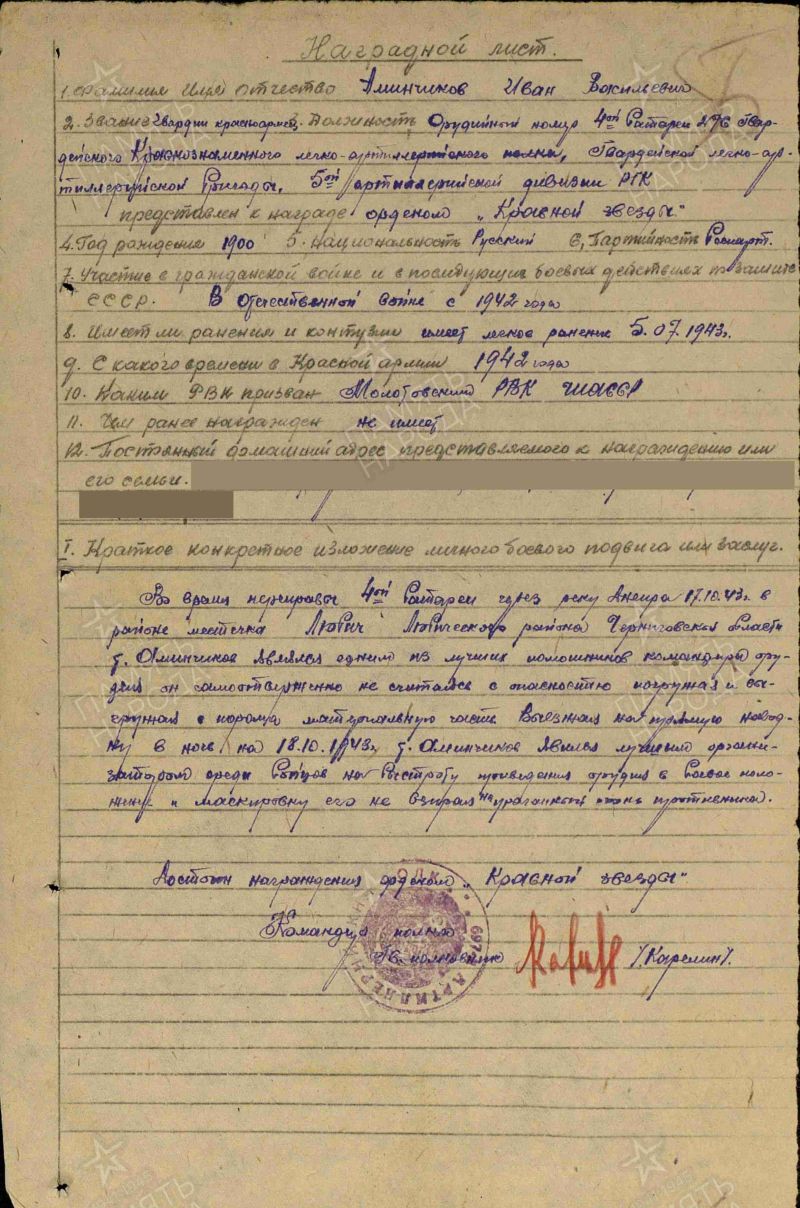 Наградной лист.
1. Фамилия Имя отчество Аминчиков Иван Васильевич
2. Звание Гвардии красноармеец 3. Должность Орудийный номер 4ой Батареи 276 Гвар-
дейского Краснознаменного легко-артиллерийского полка, Гвардейской легко-ар-
тиллерийской Бригады, 5ой артиллерийской дивизии РГК
представлен к награде орденом „Красной звезды"
4. Год рождение 1900 5. Национальность Русский 6. Партийность Беспарт.
7. Участие в гражданской войне и в последующих боевых действиях по защите
СССР. В Отечественной войне с 1942 года
8. Имеет ли ранения и контузии имеет легкое ранение 5.07.1943г.
9. С какого времени в Красной армии 1942 года
10. Каким РВК призван Молотовский РВК
11. Чем ранее награжден не имеет
12. Постоянный домашний адрес представляемого к награждению или
его семьи.
I. Краткое конкретное изложение личного боевого подвига или заслуг.
Во время переправы 4ой Батареи через реку Днепр 17.10.43г. в
районе местечка Любич Любического района Черниговской области
т. Аминчиков являлся одним из лучших помощников командира ору-
дия он самоотверженно не считаясь с опасностью погружал и вы-
гружал с парома материальную часть. Выезжая на прямую навод-
ку в ночь на 18.10.1943г. т. Аминчиков явился лучшим органи-
затором среди бойцов на быстроту приведения орудия в боевое поло-
жение и маскировку его не взирая на ураганный огонь противника.
Достоин награждения орденом „Красной звезды"
Командир полка
Гв. полковник /Карелин/.